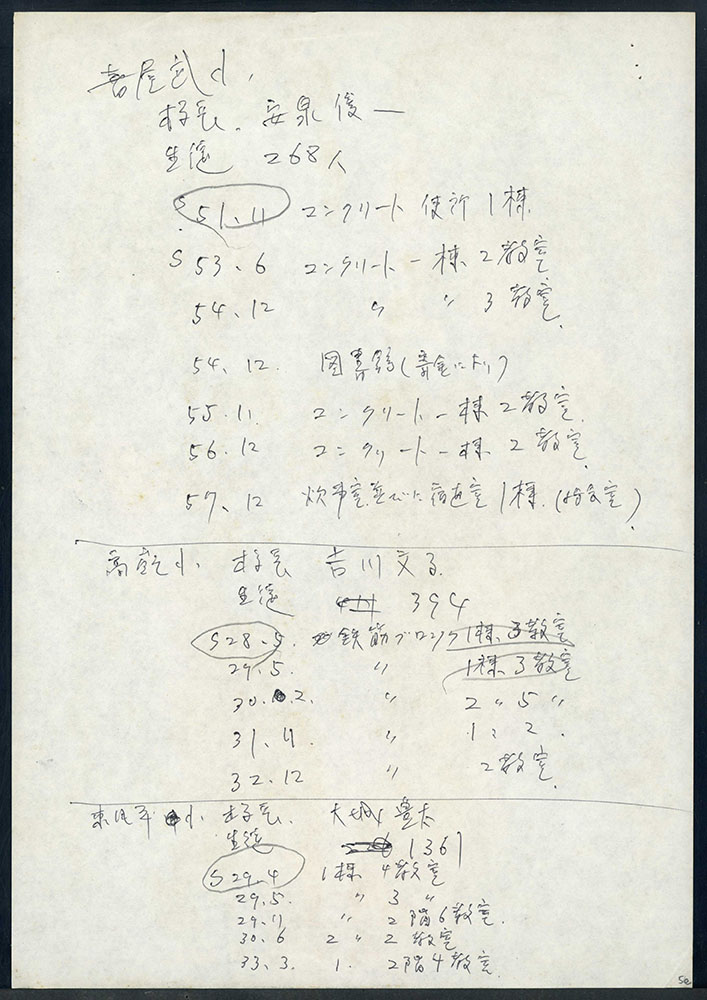 喜屋武小、
校長、安泉俊一
生徒 268人
S51、11 コンクリート便所1棟
S53、6 コンクリート一棟 2教室
54、12 〃 〃 3教室
54、12. 図書館(寄金により)
55.11. コンクリート一棟2教室
56.12 コンクリート一棟2教室
57、12 炊事室並びに宿直室1棟
高嶺小 校長 吉川文子
生徒 394
S28.5. 鉄筋ブロック1棟3教室
29.5. 〃 1棟3教室
30. 2. 〃 2〃5〃
31.11. 〃 1〃2〃
32.12 〃 2教室
東風平小 校長、大城豊太
生徒 1361
S29.4 1棟4教室
29.5. 〃 3〃
29.11 〃 2階6教室.
30.6 2〃2教室
33.3. 1. 2階4教室